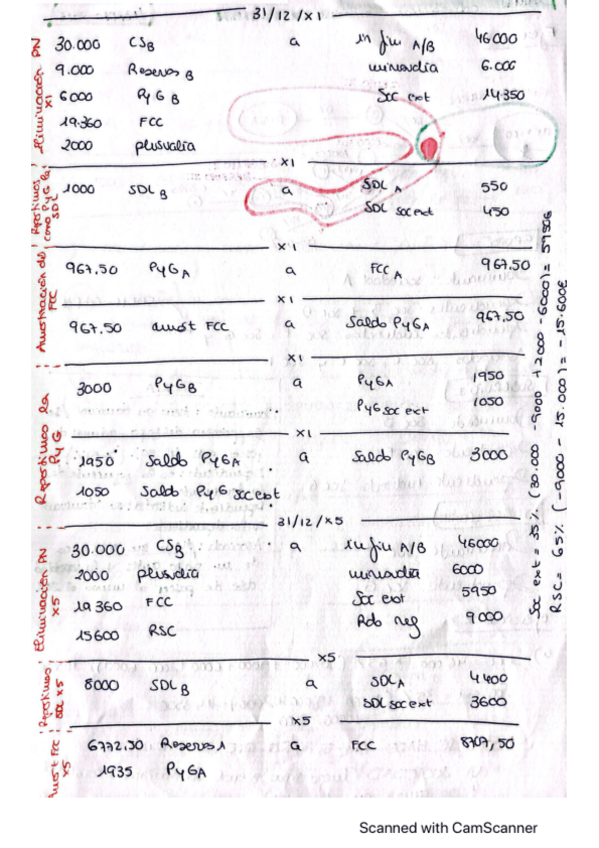 31/12/X1
30.000 CSB a in fin A/B 46.000
9.000 Reservas B minusvalía 6.000
6000 PyG B Soc ext 14.350
19.360 FCC
2000 plusvalía
Eliminación PN X1
X1
1000 SDL B a SDL A 550
SDL soc ext 450
SDL
X1
967,50 PyG A a FCC A 967,50
Amortización del FCC
X1
967,50 amort FCC a Saldo PyG A 967,50
X1
3000 PyG B a PyG A 1950
PyG soc ext 1050
X1
1950 Saldo PyG A a Saldo PyG B 3000
1050 Saldo PyG soc ext
PyG
31/12/X5
30.000 CSB a in fin A/B 46000
2000 plusvalía 6000
19360 FCC Soc ext 5950
15600 RSC Rdo neg 9000
Eliminación PN X5
X5
8000 SDL B a SDL A 4400
SDL soc ext 3600
SDL X5
X5
6772,50 Reservas a FCC
1935 PyG A
FCC X5
Soc ext = 35% (30.000 - 9000 + 2000 - 6000) =
RSC = 65% (-9000 - 15.000) = - 15.600€
Scanned with CamScanner